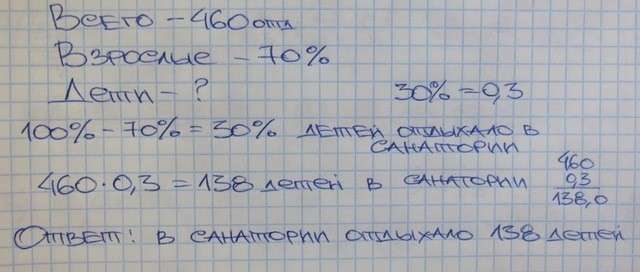 Всего – 460 отд
Взрослые – 70%
Дети – ?
30% = 0,3
100% – 70% = 30% детей отдыхало в
санатории
460 · 0,3 = 138 детей в санатории
460
0,3
138,0
Ответ: в санатории отдыхало 138 детей